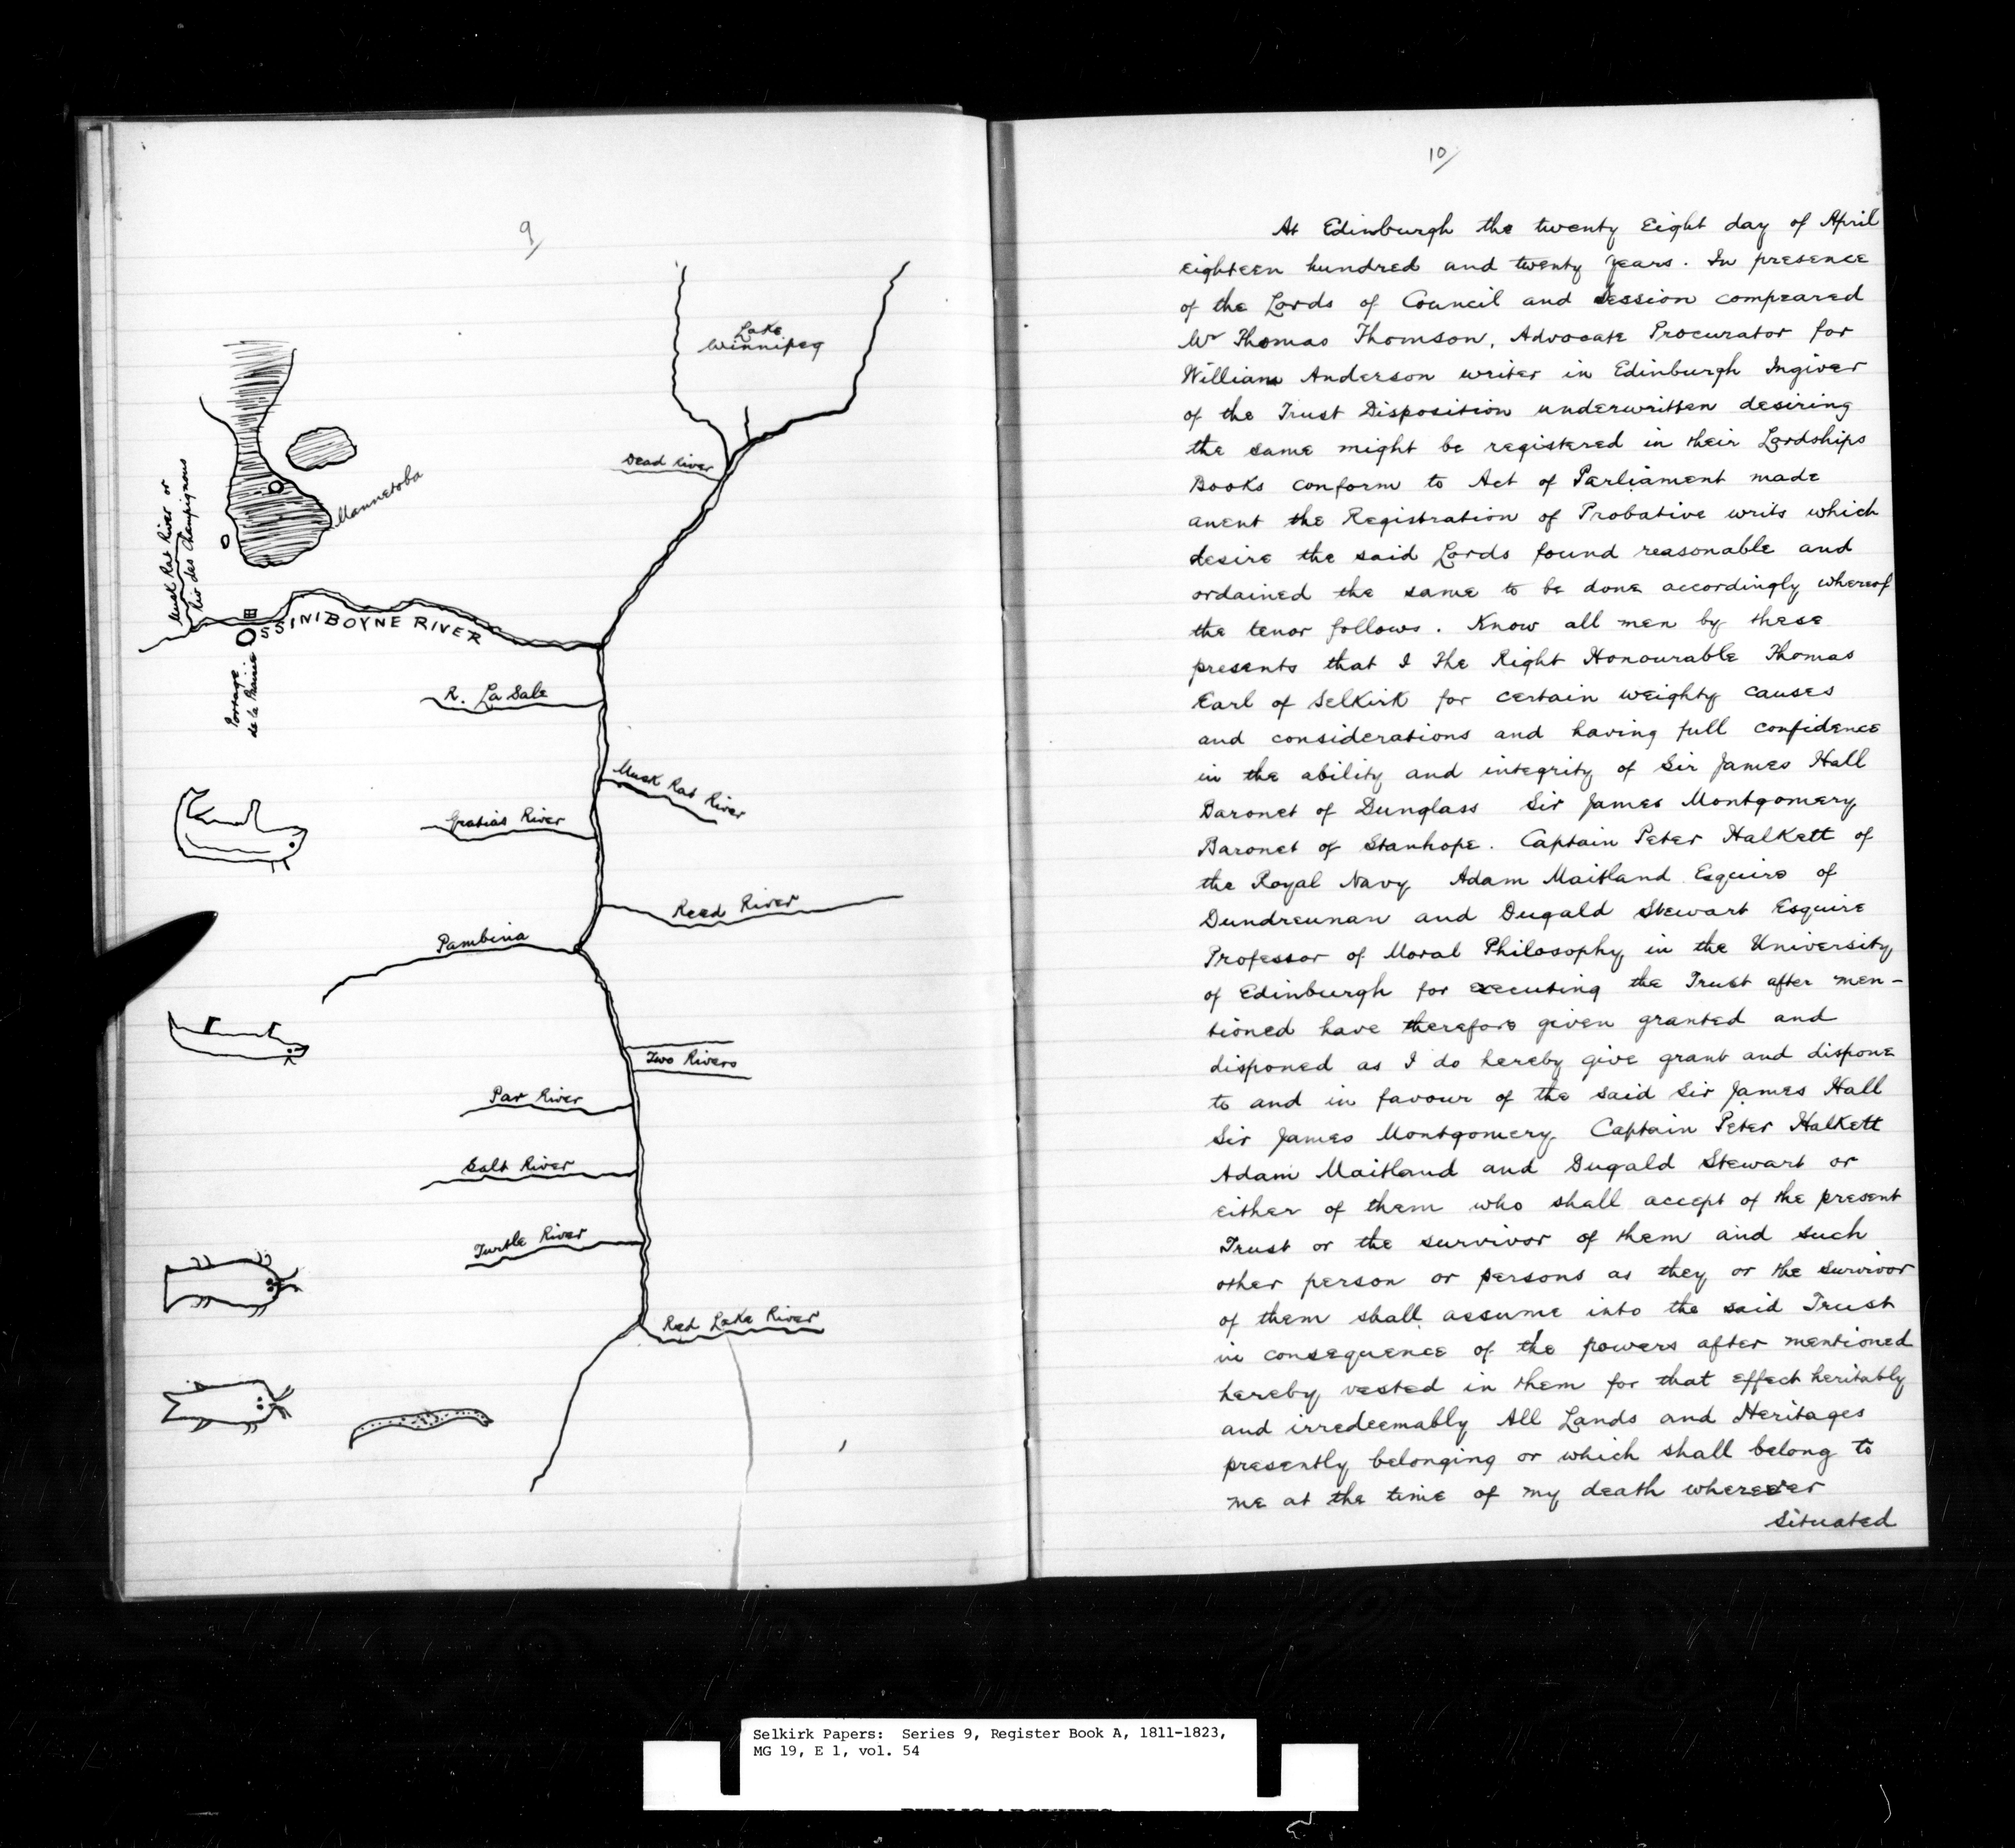 9/
Lake
Winnipeg
Dead River
Mannetoba
Musk Rat River or
Riv des Champignons
OSSINIBOYNE RIVER
Portage
de la Prairie
R. La Sale
Musk Rat River
Gratias River
Reed River
Pambina
Two Rivers
Par River
Salt River
Turtle River
Red Lake River
10/
At Edinburgh the twenty Eight day of April
eighteen hundred and twenty years. In presence
of the Lords of Council and Session compeared
Mr Thomas Thomson, Advocate Procurator for
William Anderson writer in Edinburgh Ingiver
of the Trust Disposition underwritten desiring
the same might be registered in their Lordships
Books conform to Act of Parliament made
anent the Registration of Probative writs which
desire the said Lords found reasonable and
ordained the same to be done accordingly whereof
the tenor follows. Know all men by these
presents that I The Right Honourable Thomas
Earl of Selkirk for certain weighty causes
and considerations and having full confidence
in the ability and integrity of Sir James Hall
Baronet of Dunglass Sir James Montgomery
Baronet of Stanhope. Captain Peter Halkett of
the Royal Navy Adam Maitland Esquire of
Dundreunan and Dugald Stewart Esquire
Professor of Moral Philosophy in the University
of Edinburgh for executing the Trust after men-
tioned have therefore given granted and
disponed as I do hereby give grant and dispone
to and in favour of the said Sir James Hall
Sir James Montgomery Captain Peter Halkett
Adam Maitland and Dugald Stewart or
either of them who shall accept of the present
Trust or the survivor of them and such
other person or persons as they or the survivor
of them shall assume into the said Trust
in consequence of the powers after mentioned
hereby vested in them for that effect heritably
and irredeemably All Lands and Heritages
presently belonging or which shall belong to
me at the time of my death wherever
situated
Selkirk Papers: Series 9, Register Book A, 1811-1823,
MG 19, E 1, vol. 54